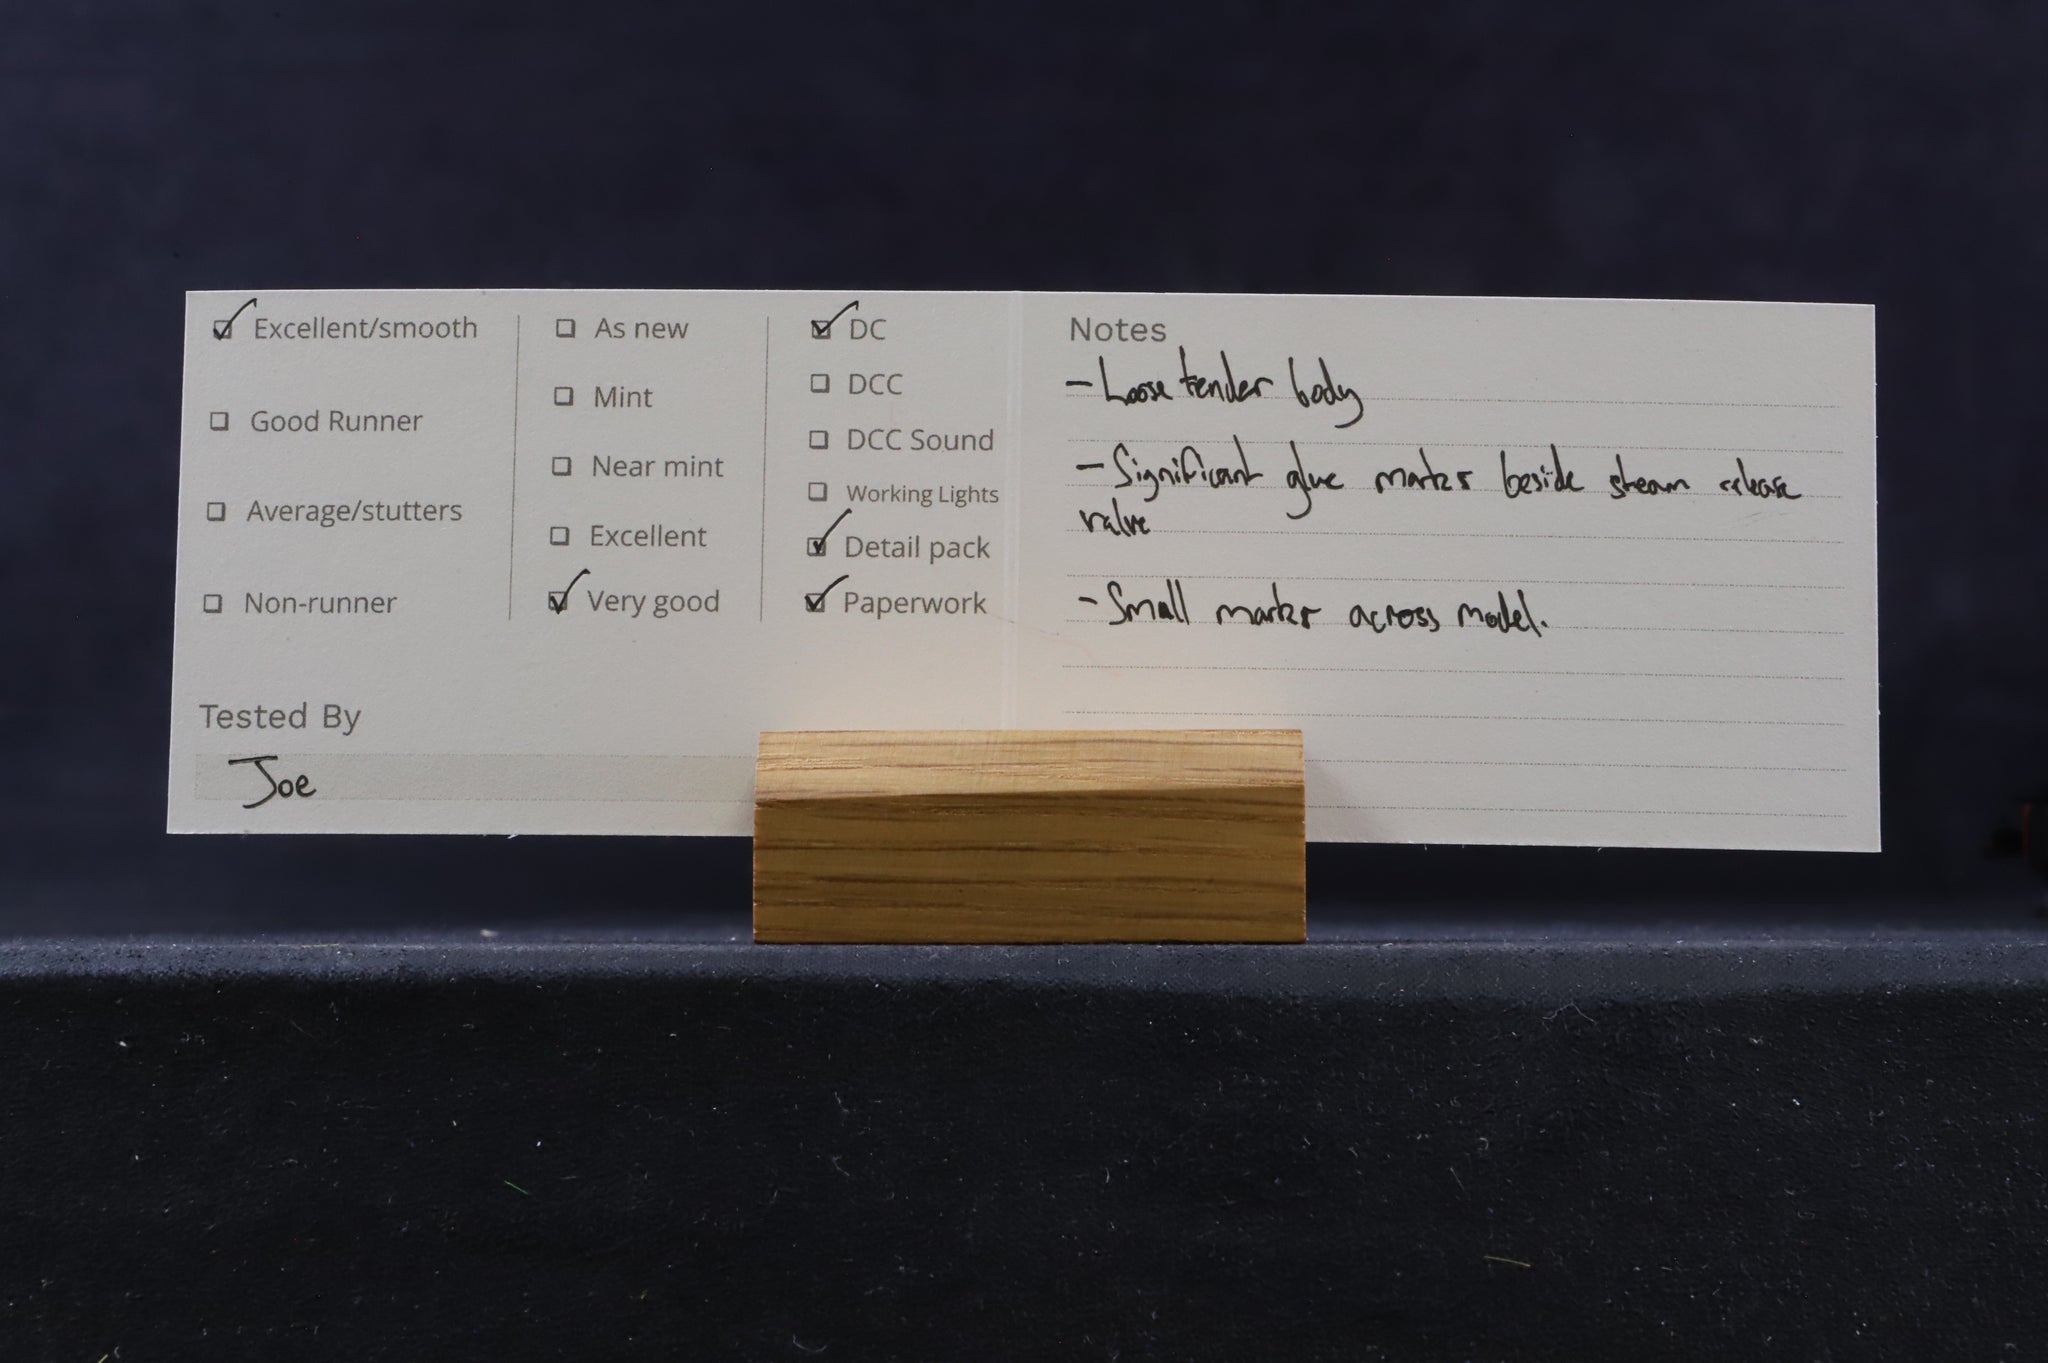 Excellent/smooth
Good Runner
Average/stutters
Non-runner
As new
Mint
Near mint
Excellent
Very good
DC
DCC
DCC Sound
Working Lights
Detail pack
Paperwork
Tested By
Joe
Notes
- Loose tender body
- Significant glue marks beside steam release
valve
- Small marks across model.